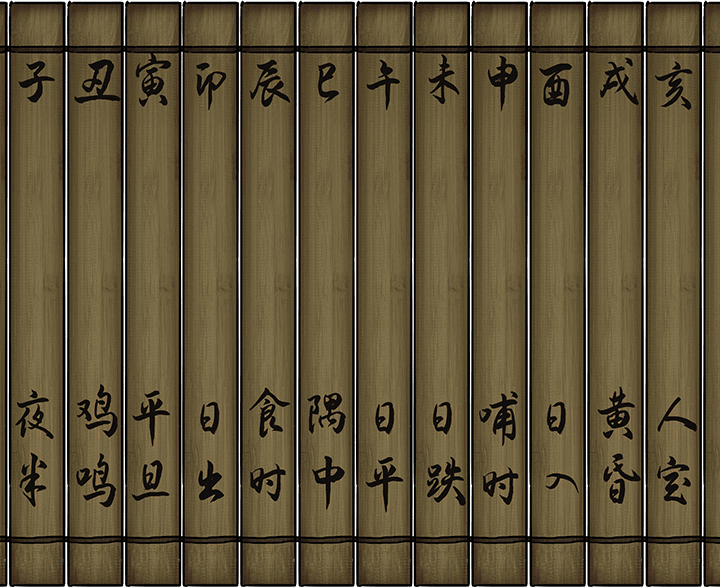 子 夜半
丑 鸡鸣
寅 平旦
卯 日出
辰 食时
巳 隅中
午 日平
未 日跌
申 哺时
酉 日入
戌 黄昏
亥 人定